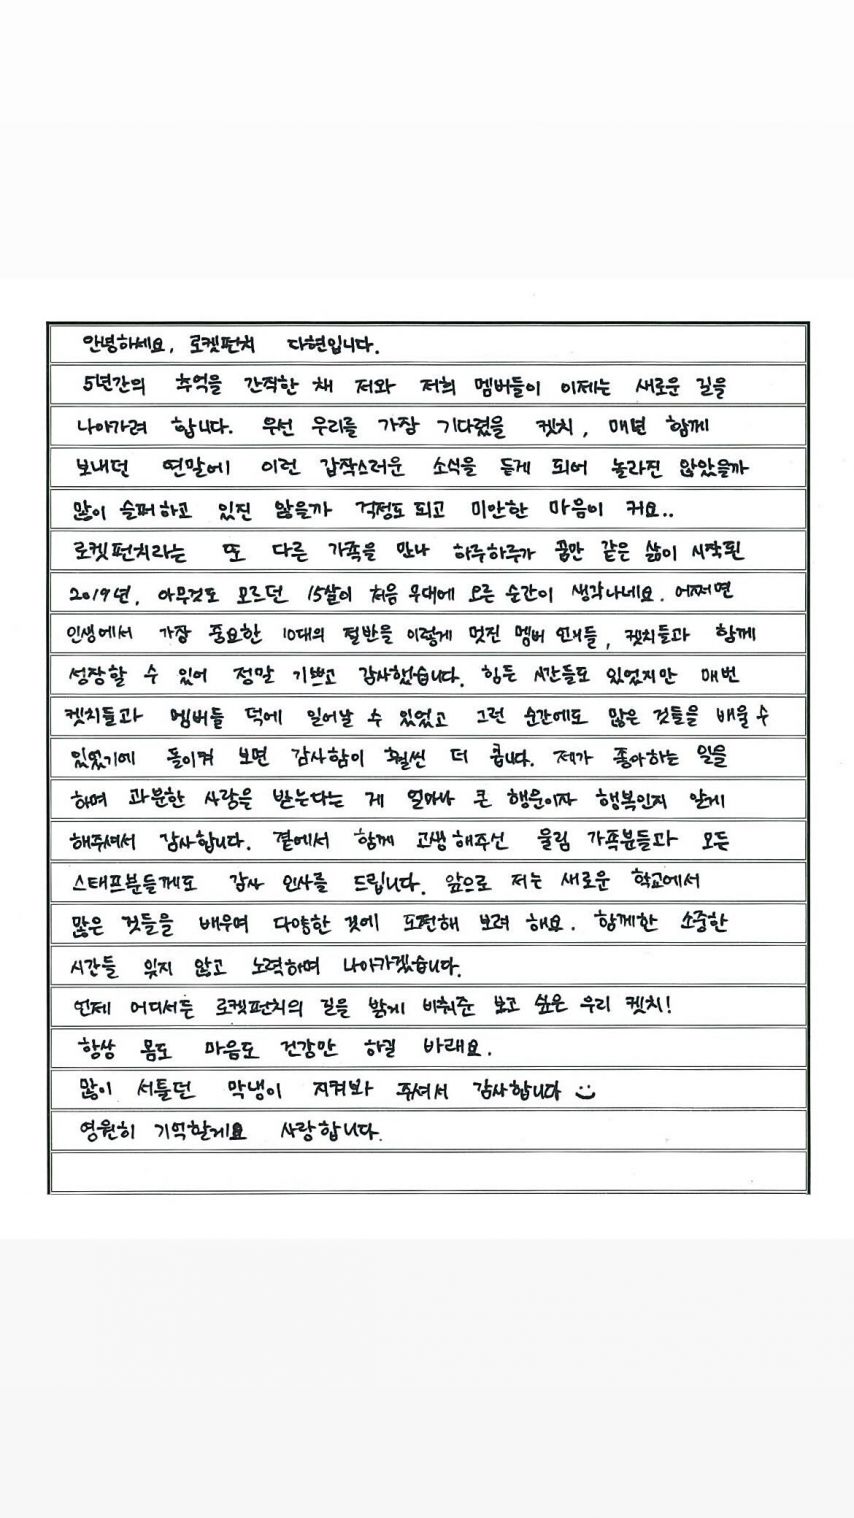 안녕하세요, 로켓펀치 다현입니다.
5년간의 추억을 간직한 채 저와 저희 멤버들이 이제는 새로운 길을
나아가려 합니다. 우선 우리를 가장 기다렸을 켓치, 매년 함께
보내던 연말에 이런 갑작스러운 소식을 듣게 되어 놀라진 않았을까
많이 슬퍼하고 있진 않을까 걱정도 되고 미안한 마음이 커요..
로켓펀치라는 또 다른 가족을 만나 하루하루가 꿈만 같은 삶이 시작된
2019년, 아무것도 모르던 15살이 처음 무대에 오른 순간이 생각나네요. 어쩌면
인생에서 가장 중요한 10대의 절반을 이렇게 멋진 멤버 언니들, 켓치들과 함께
성장할 수 있어 정말 기쁘고 감사했습니다. 힘든 시간들도 있었지만 매번
켓치들과 멤버들 덕에 일어날 수 있었고 그런 순간에도 많은 것들을 배울 수
있었기에 돌이켜 보면 감사함이 훨씬 더 큽니다. 제가 좋아하는 일을
하며 과분한 사랑을 받는다는 게 얼마나 큰 행운이자 행복인지 알게
해주셔서 감사합니다. 곁에서 함께 고생해주신 울림 가족분들과 모든
스태프분들께도 감사 인사를 드립니다. 앞으로 저는 새로운 학교에서
많은 것들을 배우며 다양한 것에 도전해 보려 해요. 함께한 소중한
시간들 잊지 않고 노력하며 나아가겠습니다.
언제 어디서든 로켓펀치의 길을 밝게 비춰준 보고 싶은 우리 켓치!
항상 몸도 마음도 건강만 하길 바래요.
많이 서툴던 막냉이 지켜봐 주셔서 감사합니다
영원히 기억할게요 사랑합니다.